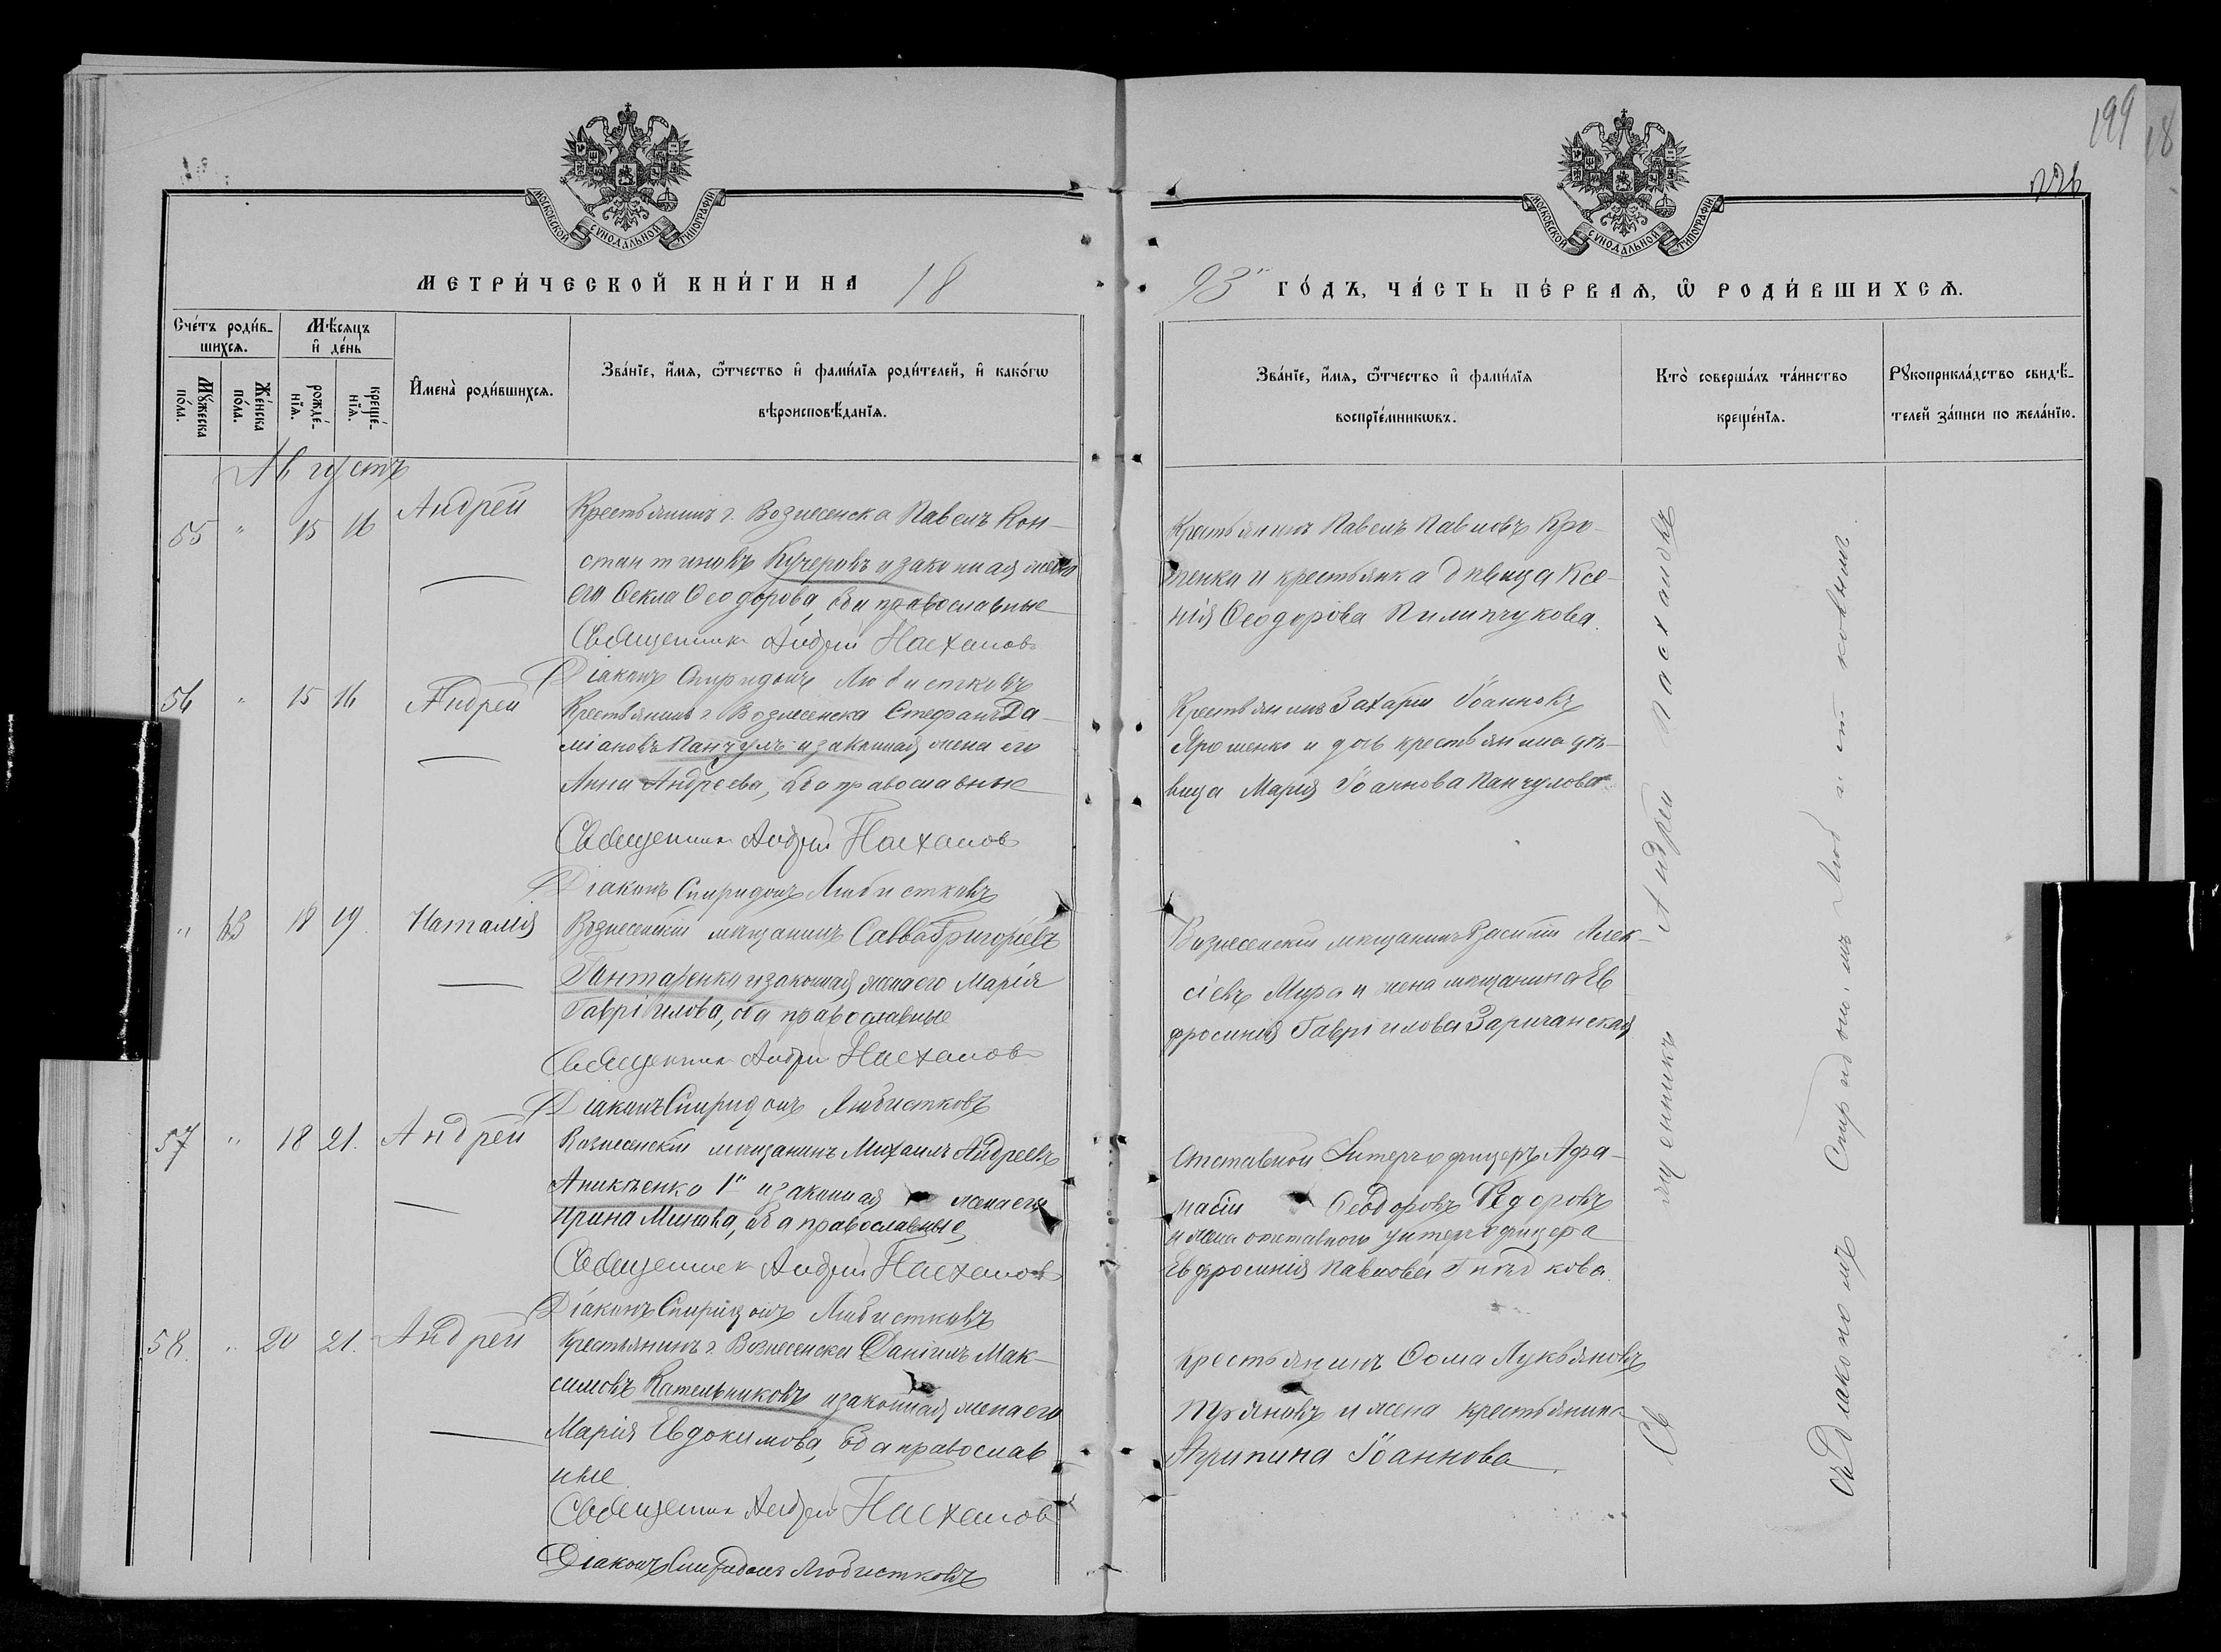 199
18
226
МОСКОВСКОЙ СѴНОДАЛЬНОЙ ТИПОГРАФІИ
МОСКОВСКОЙ СѴНОДАЛЬНОЙ ТИПОГРАФІИ
МЕТРИ́ЧЕСКОЙ КНИ́ГИ НА 18
93 ГО́ДЪ, ЧА́СТЬ ПЕ́РВАѦ, Ѡ҆ РОДИ́ВШИХСѦ.
Сче́тъ роди́в-
шихсѧ.
Мꙋ́жеска
по́ла.
Же́нска
по́ла.
Мѣ́сѧцъ
и҆ де́нь
рожде́-
нїѧ.
креще́-
нїѧ.
И҆мена̀ роди́вшихсѧ.
Зва́нїе, и҆́мѧ, ѻ҆́тчество и҆ фами́лїѧ роди́телей, и҆ како́гѡ
вѣроисповѣ́данїѧ.
Зва́нїе, и҆́мѧ, ѻ҆́тчество и҆ фами́лїѧ
воспрїе́мникѡвъ.
Кто̀ соверша́лъ та́инство
креще́нїѧ.
Рꙋкоприкла́дство свидѣ́-
телей за́писи по жела́нїю.
Августъ
55 " 15 16 Андрей
Крестьянинъ г. Вознесенска Павелъ Кон-
стантиновъ Кучеровъ и законная жена
его Ѳекла Ѳеодорова, оба православные
Священник Андрей Пасхалов
Діаконъ Спиридонъ Любистковъ
Крестьянинъ Павелъ Павловъ Кро-
тенко и крестьянка дѣвица Ксе-
нія Ѳеодорова Пилипчукова.
56 " 15 16 Андрей
Крестьянинъ г. Вознесенска Стефанъ Да-
міановъ Панчулъ и законная жена его
Анна Андреева, оба православные
Священник Андрей Пасхалов
Діаконъ Спиридонъ Любистковъ
Крестьянинъ Захарій Іоанновъ
Ярошенко и дочь крестьянина дѣ-
вица Марія Іоаннова Панчулова
" 43 18 19 Наталія
Вознесенскій мѣщанинъ Савва Григоріевъ
Гонтаренко и законная жена его Марія
Гавріилова, оба православные
Священник Андрей Пасхалов
Діаконъ Спиридонъ Любистковъ
Вознесенскій мѣщанинъ Василій Алек-
сіевъ Мура и жена мѣщанина Ев
фросинія Гавріилова Заричанская
57 " 18 21. Андрей
Вознесенскій мѣщанинъ Михаилъ Андреевъ
Аникѣенко 1й и законная жена его
Ирина Минова, оба православные
Священник Андрей Пасхалов
Діаконъ Спиридонъ Любистковъ
Отставной Унтеръ офицеръ Афа-
насій Ѳеодоровъ Ѳедоровъ
и жена отставного унтеръ офицера
Евфросинія Павлова Гнѣдкова.
58. " 20 21. Андрей
Крестьянинъ г. Вознесенска Даніилъ Мак-
симовъ Кательниковъ и законная жена его
Марія Евдокимова, оба православ
ные
Священник Андрей Пасхалов
Діаконъ Спиридонъ Любистковъ
Крестьянинъ Ѳома Лукьяновъ
и жена крестьянина
Агрипина Іоаннова
Священникъ Андрей Пасхаловъ
съ Діакономъ Спиридономъ Любистковымъ